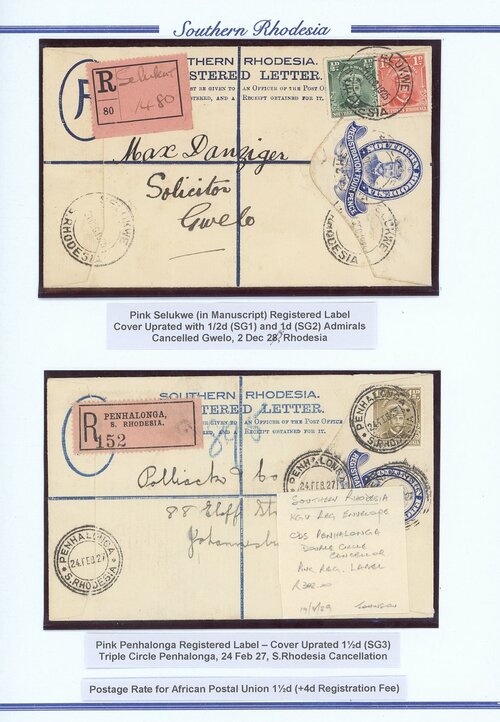 Southern Rhodesia
SOUTHERN RHODESIA.
REGISTERED LETTER.
MUST BE GIVEN TO AN OFFICER OF THE POST
REGISTERED, AND A RECEIPT OBTAINED FOR IT.
R
Selukwe
80
1480
½D
1D
SELUKWE
S. RHODESIA
SOUTHERN RHODESIA
REGISTRATION FOUR PENCE
Max Danziger
Solicitor
Gwelo
SELUKWE
S. RHODESIA
SELUKWE
RHODESIA
Pink Selukwe (in Manuscript) Registered Label
Cover Uprated with 1/2d (SG1) and 1d (SG2) Admirals
Cancelled Gwelo, 2 Dec 28, Rhodesia
SOUTHERN RHODESIA.
REGISTERED LETTER.
AN OFFICER OF THE POST OFFICE
RECEIPT OBTAINED FOR IT.
R
PENHALONGA,
S. RHODESIA.
152
PENHALONGA
S. RHODESIA
Pollack & Co
88 Eloff St
Johannesbu
PENHALONGA
24.FEB.27
PENHALONGA
24.FEB.27
S. RHODESIA
SOUTHERN RHODESIA
KGV REG ENVELOPE
CDS PENHALONGA
DOUBLE CIRCLE
CANCELLOR
PINK REG. LABEL
Pink Penhalonga Registered Label – Cover Uprated 1½d (SG3)
Triple Circle Penhalonga, 24 Feb 27, S.Rhodesia Cancellation
Postage Rate for African Postal Union 1½d (+4d Registration Fee)